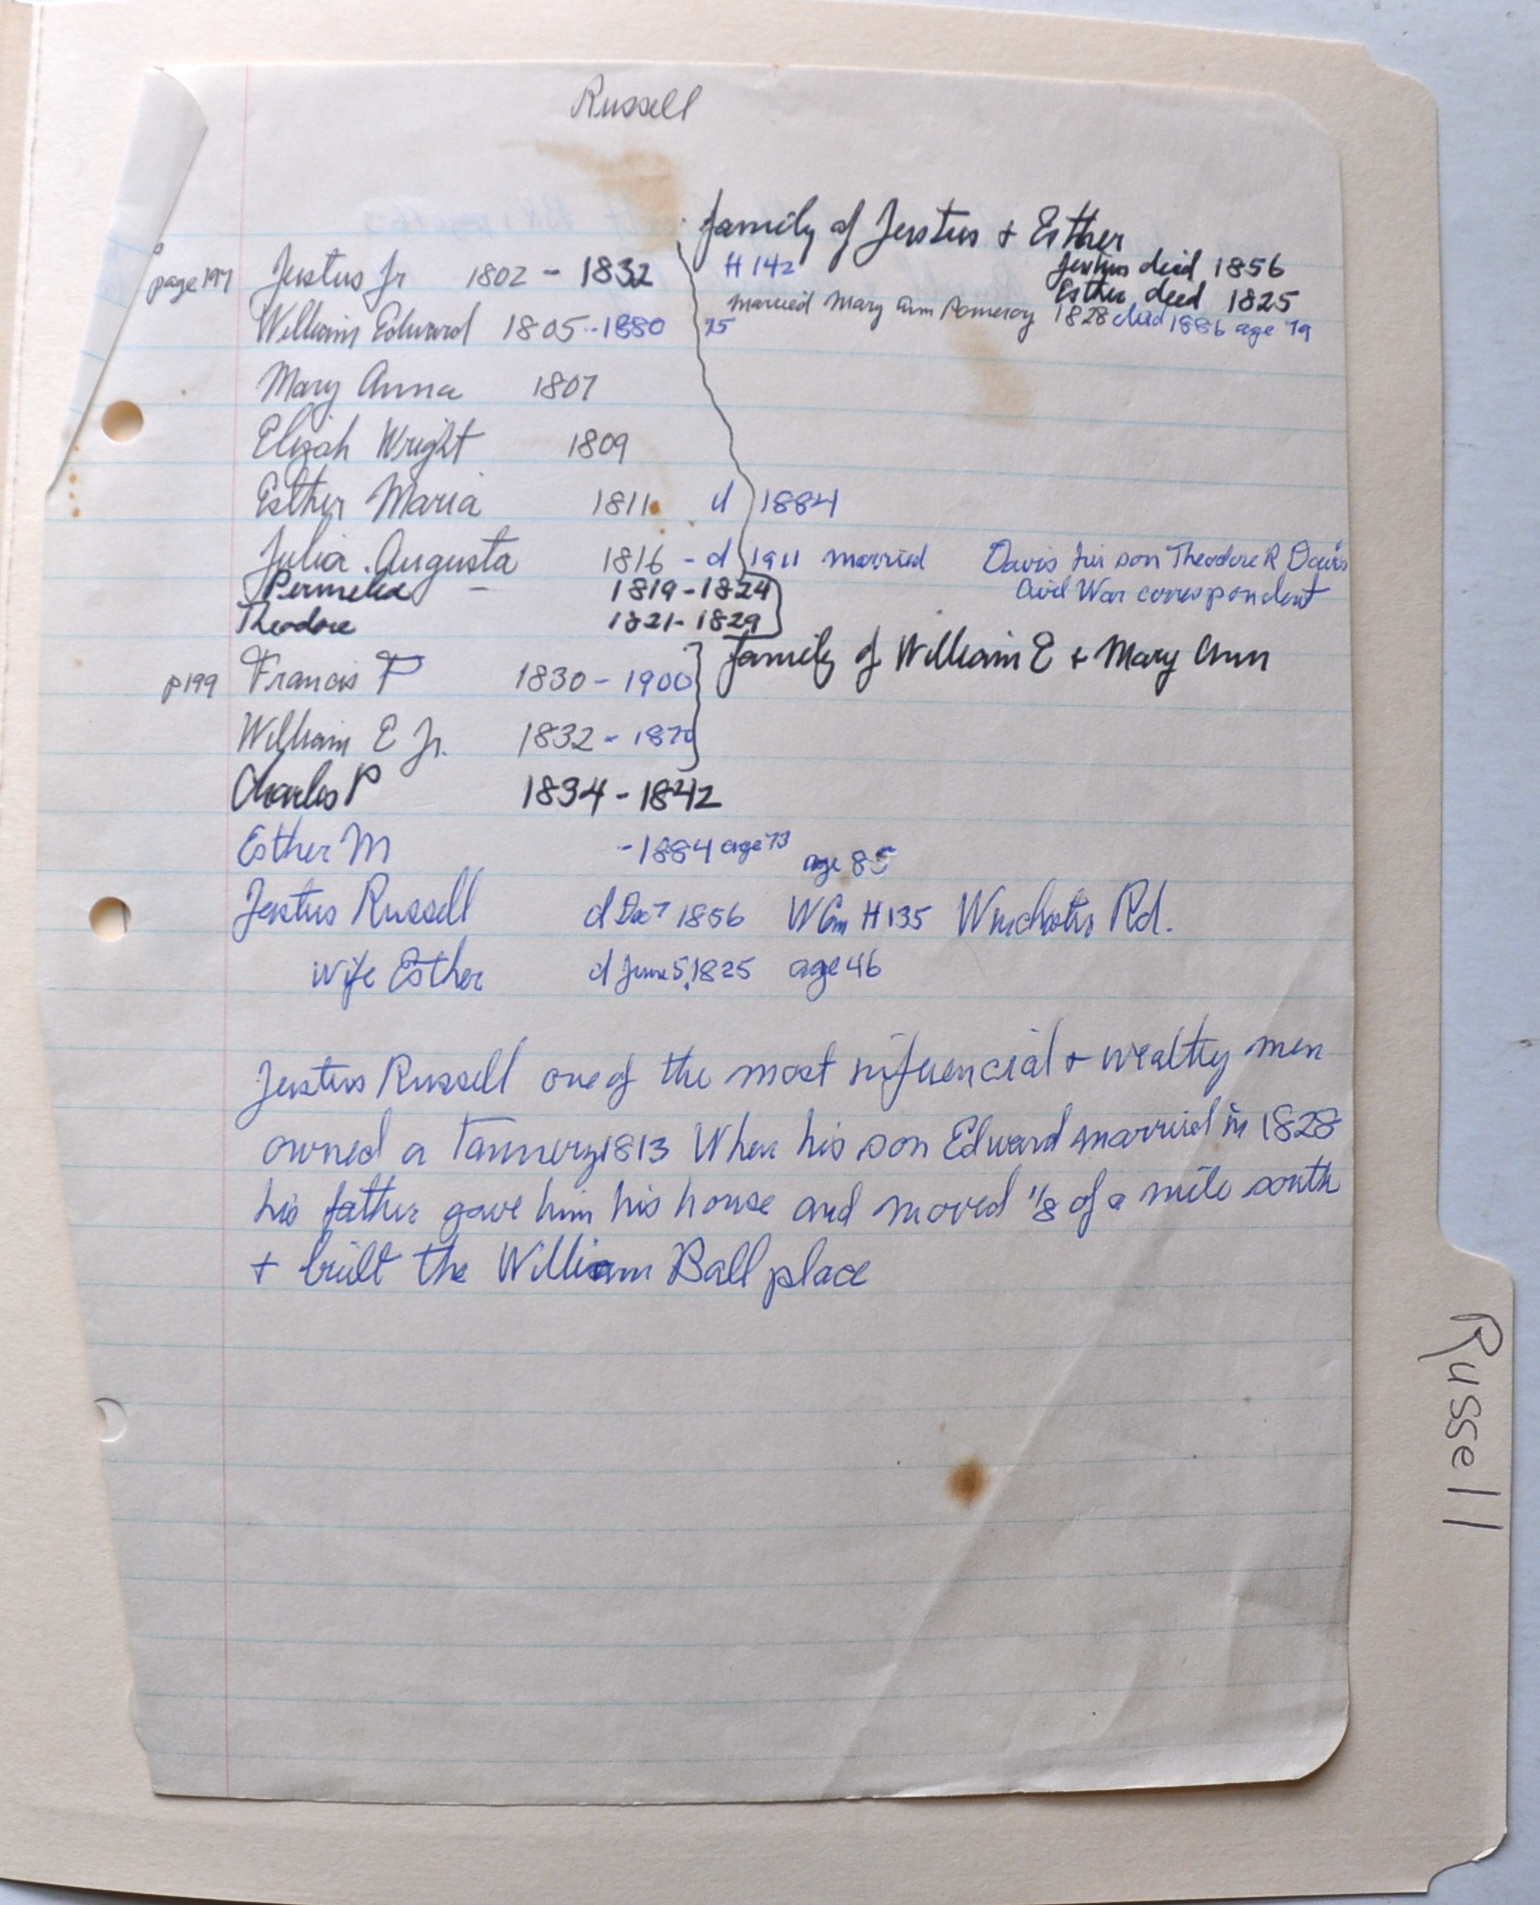 Russell
family of Justus + Esther
page 197 Justus Jr 1802 - 1832 H 142 Justus died 1856
Esther died 1825
William Edward 1805 - 1880 75 married Mary Ann Pomeroy 1828 died 1886 age 79
Mary Anna 1807
Elizah Wright 1809
Esther Maria 1811 d 1884
Julia Augusta 1816 - d 1911 married Davis her son Theodore R Davis
Permelia - 1819 - 1824 Civil War correspondent
Theodore 1821 - 1829
family of William E + Mary Ann
p199 Francis F 1830 - 1900
William E Jr. 1832 - 1870
Charles P 1834 - 1842
Esther M - 1884 age 73
age 85
Justus Russell d Dec 7 1856 W Cm H 135 Winchester Rd.
wife Esther d June 5, 1825 age 46
Justus Russell one of the most influencial + wealthy men
owned a Tannery 1813 When his son Edward married in 1828
his father gave him his house and moved 1/8 of a mile south
+ built the William Ball place
Russell